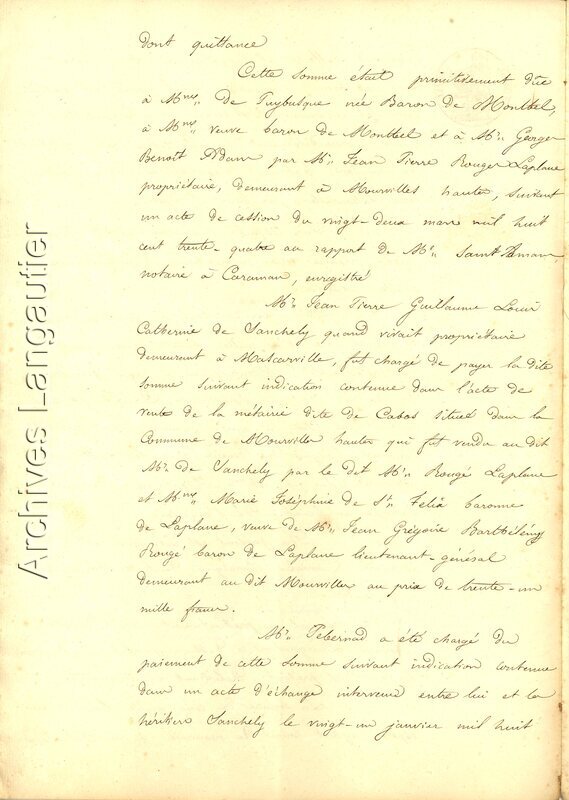 dont quittance
Cette somme était primitivement due
à Mme de Puybusque née Baron de Montbel,
à Mme veuve baron de Montbel et à Mr Georges
Benoit Adam par Mr Jean Pierre Rouger Laplane
propriétaire, demeurant à Mourvilles hautes, suivant
un acte de cession du vingt-deux mars mil huit
cent trente-quatre au rapport de Mr Saint Aman,
notaire à Caraman, enregistré
Mr Jean Pierre Guillaume Louis
Catherine de Sanchely quand vivait propriétaire
demeurant à Mascarville, fut chargé de payer la dite
somme suivant indication contenue dans l'acte de
vente de la métairie dite de Cabos située dans la
Commune de Mourvilles hautes qui fut vendue au dit
Mr de Sanchely par le dit Mr Rougé Laplane
et Mme Marie Joséphine de St Félix baronne
de Laplane, veuve de Mr Jean Grégoire Barthélémy
Rougé baron de Laplane lieutenant-général
demeurant au dit Mourvilles au prix de trente-un
mille francs.
Mr Pebernad a été chargé du
paiement de cette somme suivant indication contenue
dans un acte d'échange intervenu entre lui et les
héritiers Sanchely le vingt-un janvier mil huit
Archives Langautier